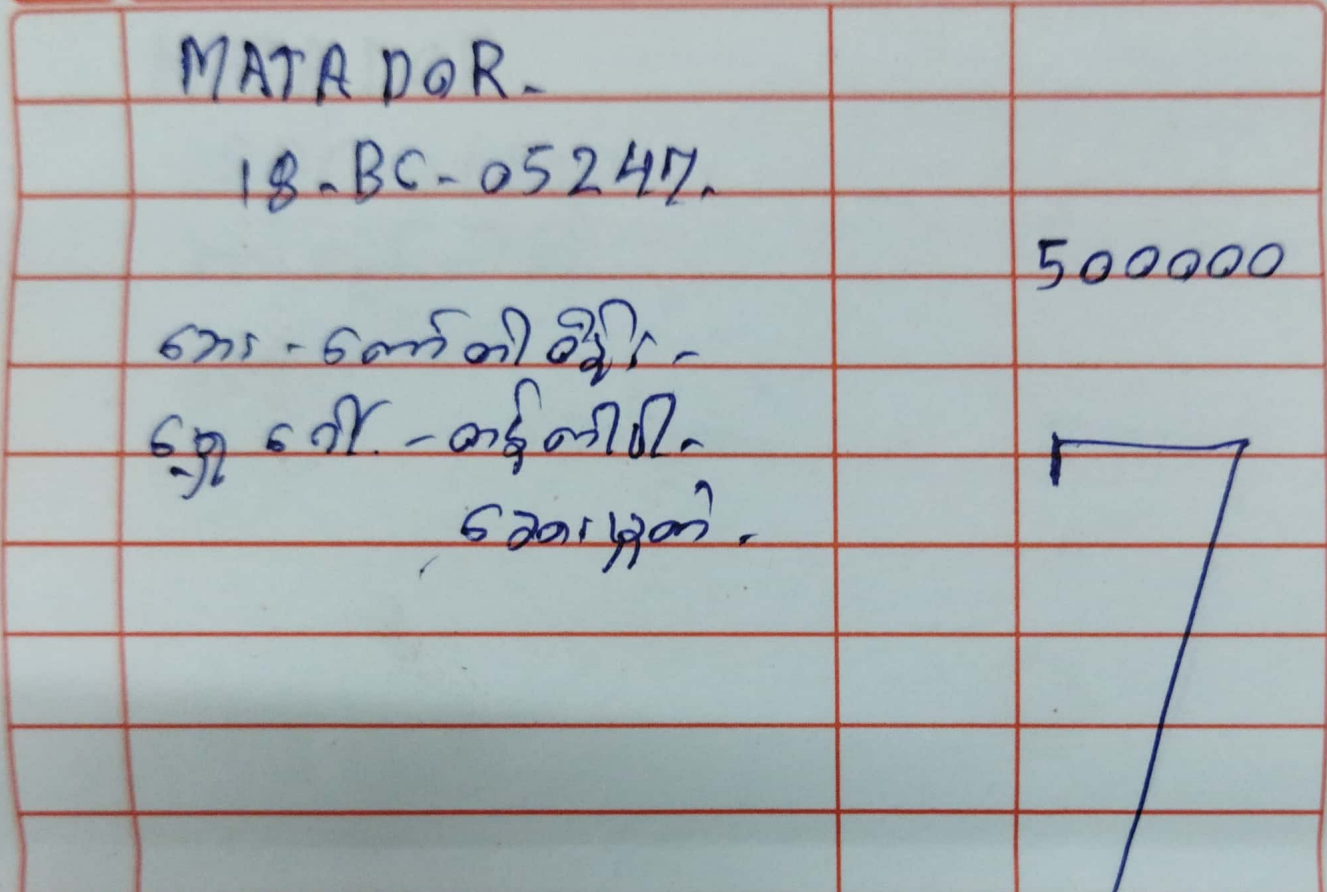 MATADOR.
18-BC-05247.
500000
ဘေး - တော်တါစီနိုး -
ရှေ့ခေါ်. - တန်တါဝါ.
ဆေးမှုတ်.